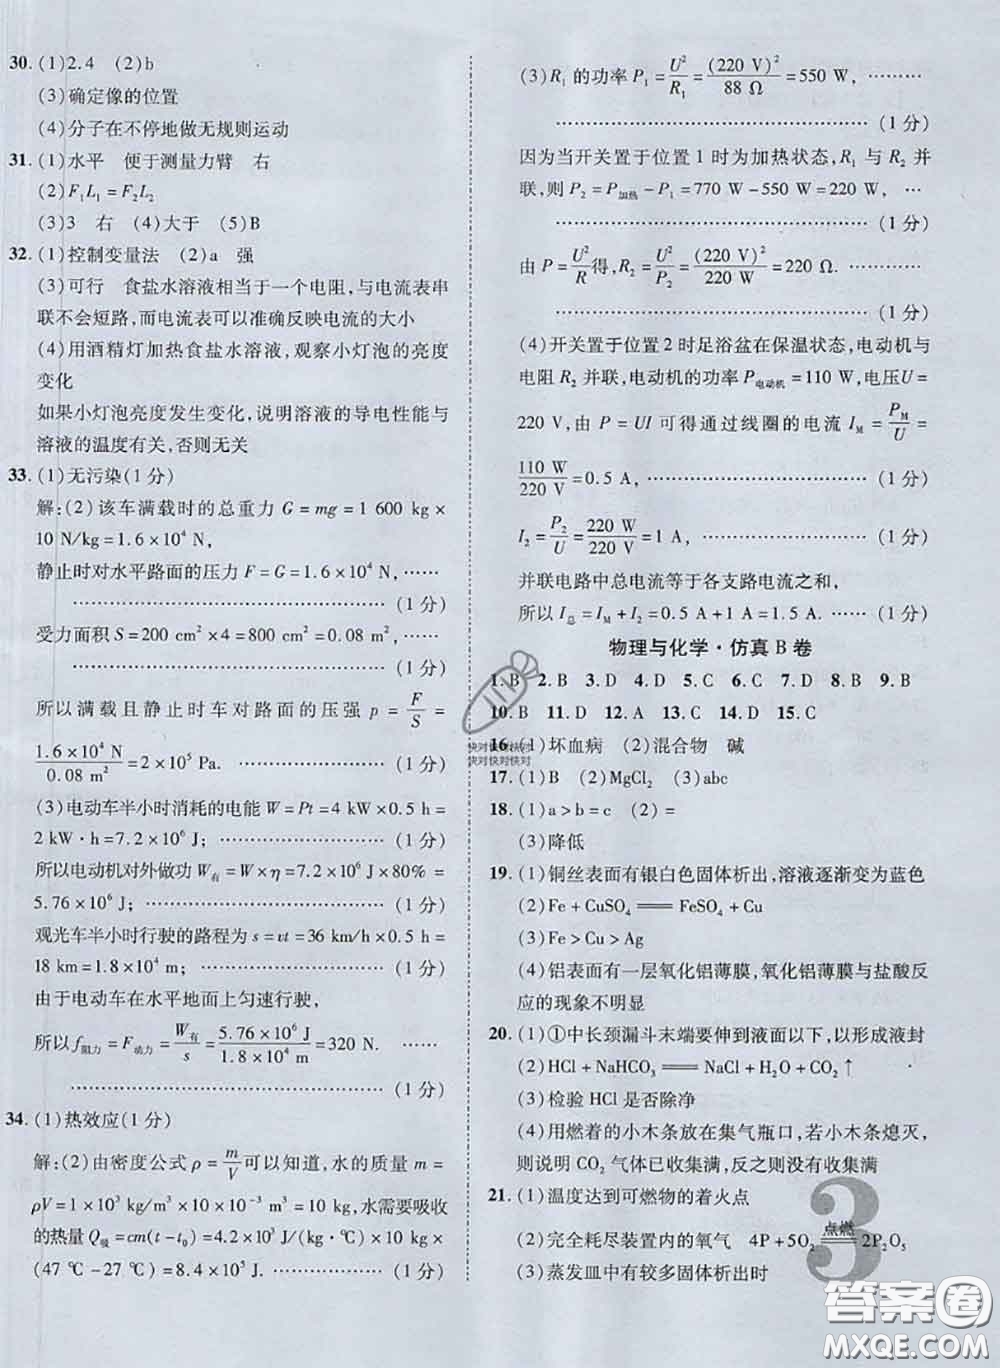 30. (1)2.4 (2)b
(3)确定像的位置
(4)分子在不停地做无规则运动
31. (1)水平 便于测量力臂 右
(2)F₁L₁=F₂L₂
(3)3 右 (4)大于 (5)B
32. (1)控制变量法 (2)a 强
(3)可行 食盐水溶液相当于一个电阻,与电流表串
联不会短路,而电流表可以准确反映电流的大小
(4)用酒精灯加热食盐水溶液,观察小灯泡的亮度
变化
如果小灯泡亮度发生变化,说明溶液的导电性能与
溶液的温度有关,否则无关
33. (1)无污染(1分)
解:(2)该车满载时的总重力 G=mg=1 600 kg×
10 N/kg=1.6×10⁴ N,
静止时对水平路面的压力 F=G=1.6×10⁴ N, ……
………………………………………… (1分)
受力面积 S=200 cm²×4=800 cm²=0.08 m²,
………………………………………… (1分)
所以满载且静止时车对路面的压强 p=F/S=
1.6×10⁴ N/0.08 m²=2×10⁵ Pa. ……………………… (1分)
(3)电动车半小时消耗的电能 W=Pt=4 kW×0.5 h=
2 kW·h=7.2×10⁶ J; …………………… (1分)
所以电动机对外做功 W有=W×η=7.2×10⁶ J×80%=
5.76×10⁶ J; ……………………………… (1分)
观光车半小时行驶的路程为 s=vt=36 km/h×0.5 h=
18 km=1.8×10⁴ m; ……………………… (1分)
由于电动车在水平地面上匀速行驶,
所以 f阻力=F动力=W有/s=5.76×10⁶ J/1.8×10⁴ m=320 N. ……
………………………………………… (1分)
34. (1)热效应(1分)
解:(2)由密度公式 ρ=m/V可以知道,水的质量 m=
ρV=1×10³ kg/m³×10×10⁻³ m³=10 kg,水需要吸收
的热量 Q吸=cm(t-t₀)=4.2×10³ J/(kg·℃)×10 kg×
(47 ℃-27 ℃)=8.4×10⁵ J. ……………… (1分)
(3) R₁ 的功率 P₁=U²/R₁=(220 V)²/88 Ω=550 W, ………
………………………………………… (1分)
因为当开关置于位置1时为加热状态,R₁ 与 R₂ 并
联,则 P₂=P加热-P₁=770 W-550 W=220 W, …
………………………………………… (1分)
由 P=U²/R得,R₂=U²/P₂=(220 V)²/220 W=220 Ω. …………
………………………………………… (1分)
(4)开关置于位置2时足浴盆在保温状态,电动机与
电阻 R₂ 并联,电动机的功率 P电动机=110 W,电压U=
220 V,由 P=UI 可得通过线圈的电流 I_M=P_M/U=
110 W/220 V=0.5 A, ……………………………… (1分)
I₂=P₂/U=220 W/220 V=1 A, ……………………… (1分)
并联电路中总电流等于各支路电流之和,
所以 I总=I_M+I₂=0.5 A+1 A=1.5 A. …… (1分)
物理与化学·仿真 B 卷
1. B 2. B 3. D 4. D 5. C 6. C 7. D 8. B 9. B
10. B 11. D 12. A 13. C 14. D 15. C
16. (1)坏血病 (2)混合物 碱
17. (1)B (2)MgCl₂ (3)abc
18. (1)a>b=c (2)=
(3)降低
19. (1)铜丝表面有银白色固体析出,溶液逐渐变为蓝色
(2)Fe+CuSO₄══FeSO₄+Cu
(3)Fe>Cu>Ag
(4)铝表面有一层氧化铝薄膜,氧化铝薄膜与盐酸反
应的现象不明显
20. (1)①中长颈漏斗末端要伸到液面以下,以形成液封
(2)HCl+NaHCO₃══NaCl+H₂O+CO₂↑
(3)检验 HCl 是否除净
(4)用燃着的小木条放在集气瓶口,若小木条熄灭,
则说明 CO₂ 气体已收集满,反之则没有收集满
21. (1)温度达到可燃物的着火点
(2)完全耗尽装置内的氧气 4P+5O₂ 点燃══ 2P₂O₅
(3)蒸发皿中有较多固体析出时
3
快对快对快对
快对快对快对
答案圈
MXQE.COM